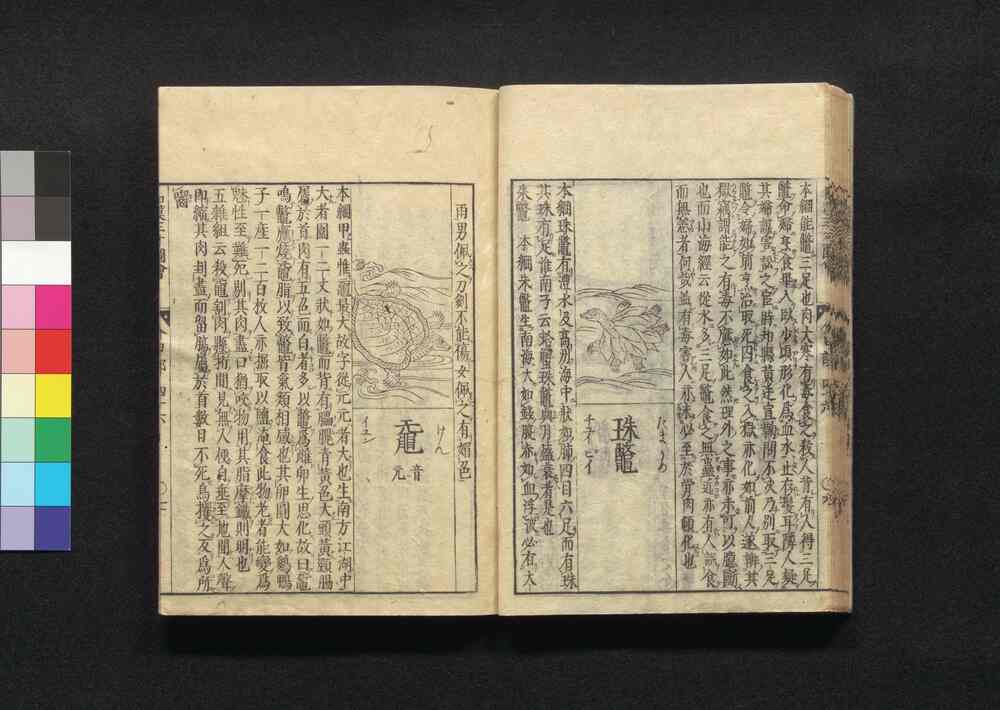 本綱能鼈三足也肉大寒有毒食之殺人昔有人得三足
鼈命婦烹食畢入臥少頃形化爲血水止存髮耳隣人疑
其婦謀害訟之官時知縣黄廷宣鞫問不决乃別取三足
鼈令婦如前烹治取死囚食之入獄亦化如前人遂辨其
獄竊謂能之有毒不應如此然理外之事亦未可以臆斷
也而山海經云從水多三足鼈食之無蠱近亦有人誤食
而無恙者何哉蓋有毒害人亦未必至於骨肉頓化也
珠鼈
たまかめ
チユイ ピイ
本綱珠鼈有澧水及高州海中狀如肺四目六足而有珠
其珠有足淮南子云蛤蟹珠鼈與月盛衰者是也
朱鼈 本綱朱鼈生南海大如錢腹赤如血浮波必有大
雨男佩之刀劍不能傷女佩之有媚色
黿
げん
音元
イユン
本綱甲蟲惟黿最大故字從元元者大也生南方江湖中
大者圍一二丈狀如鼈而背有腽膃青黄色大頭黄頸腸
屬於首肉有五色而白者多以鼈爲雌卵生思化故曰黿
鳴鼈應燒黿脂以致鼈皆氣類相感也其卵圓大如鷄鴨
子一産一二百枚人亦掘取以鹽淹食此物老者能變爲
魅性至難死剔其肉盡口猶咬物用其脂摩鐵則明也
五雜組云殺黿剉肉懸桁間見無人便自垂至地聞人聲
即縮其肉刲盡而留腸屬於首數日不死烏攫之反爲所
囓